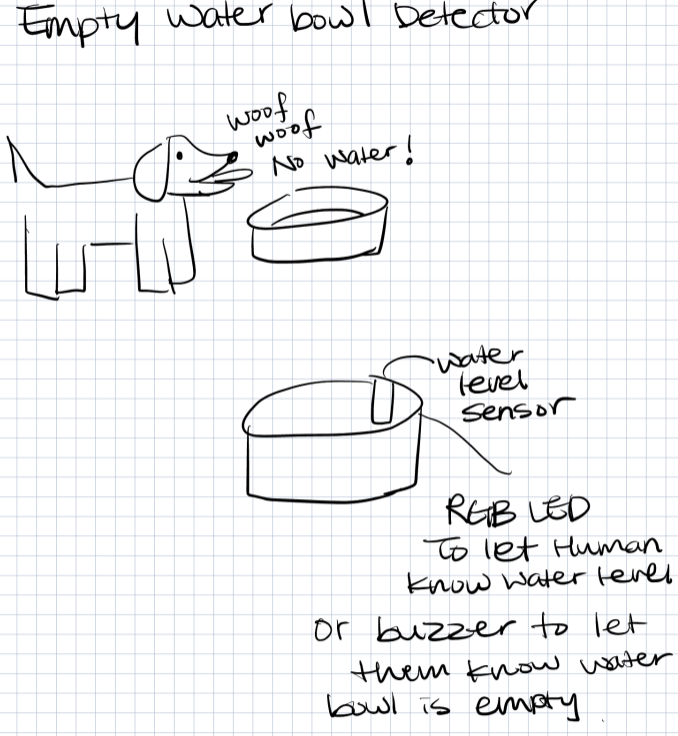 Empty Water bowl Detector
woof
woof
No water!
water
level
sensor
RGB LED
To let Human
Know water level
or buzzer to let
them know water
bowl is empty